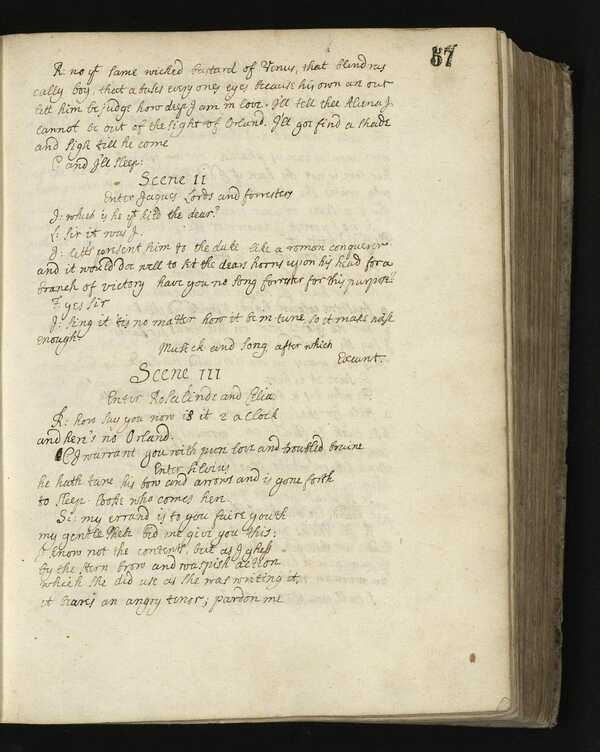 57
R: no yt same wicked bastard of Venus, that blind ras
cally boy, that abuses every ones eyes because his own are out
lett him be judge how deep I am in love. I'll tell thee Aliena I
cannot be out of the sight of Orland. I'll goe find a shade
and sigh till he come
C: and I'll sleep:
Scene II
Enter Jaques Lords and forresters
J: which is he yt kild the dear?
L: Sir it was I.
J: letts present him to the duke like a roman conquerer
and it would doe well to set the dears horns upon his head for a
branch of victory have you no song forrster for this purpose?
F: yes Sir
J: Sing it tis no matter how it be in tune so it make noise
enough
Musick and song after which
Exeunt.
Scene III
Enter Rosalinde and Celia
R: how say you now is it 2 a clock
and her's no Orland.
C I warrant you with pure love and troubled braine
Enter Silvius
he hath tane his bow and arrows and is gone forth
to sleep. looke who comes here.
Si: my errand is to you faire youth
my gentle Phebe bid me give you this:
I know not the contents, but as I ghess
by the stern brow and waspish action
which she did use as she was writing it,
it bears an angry tenor; pardon me